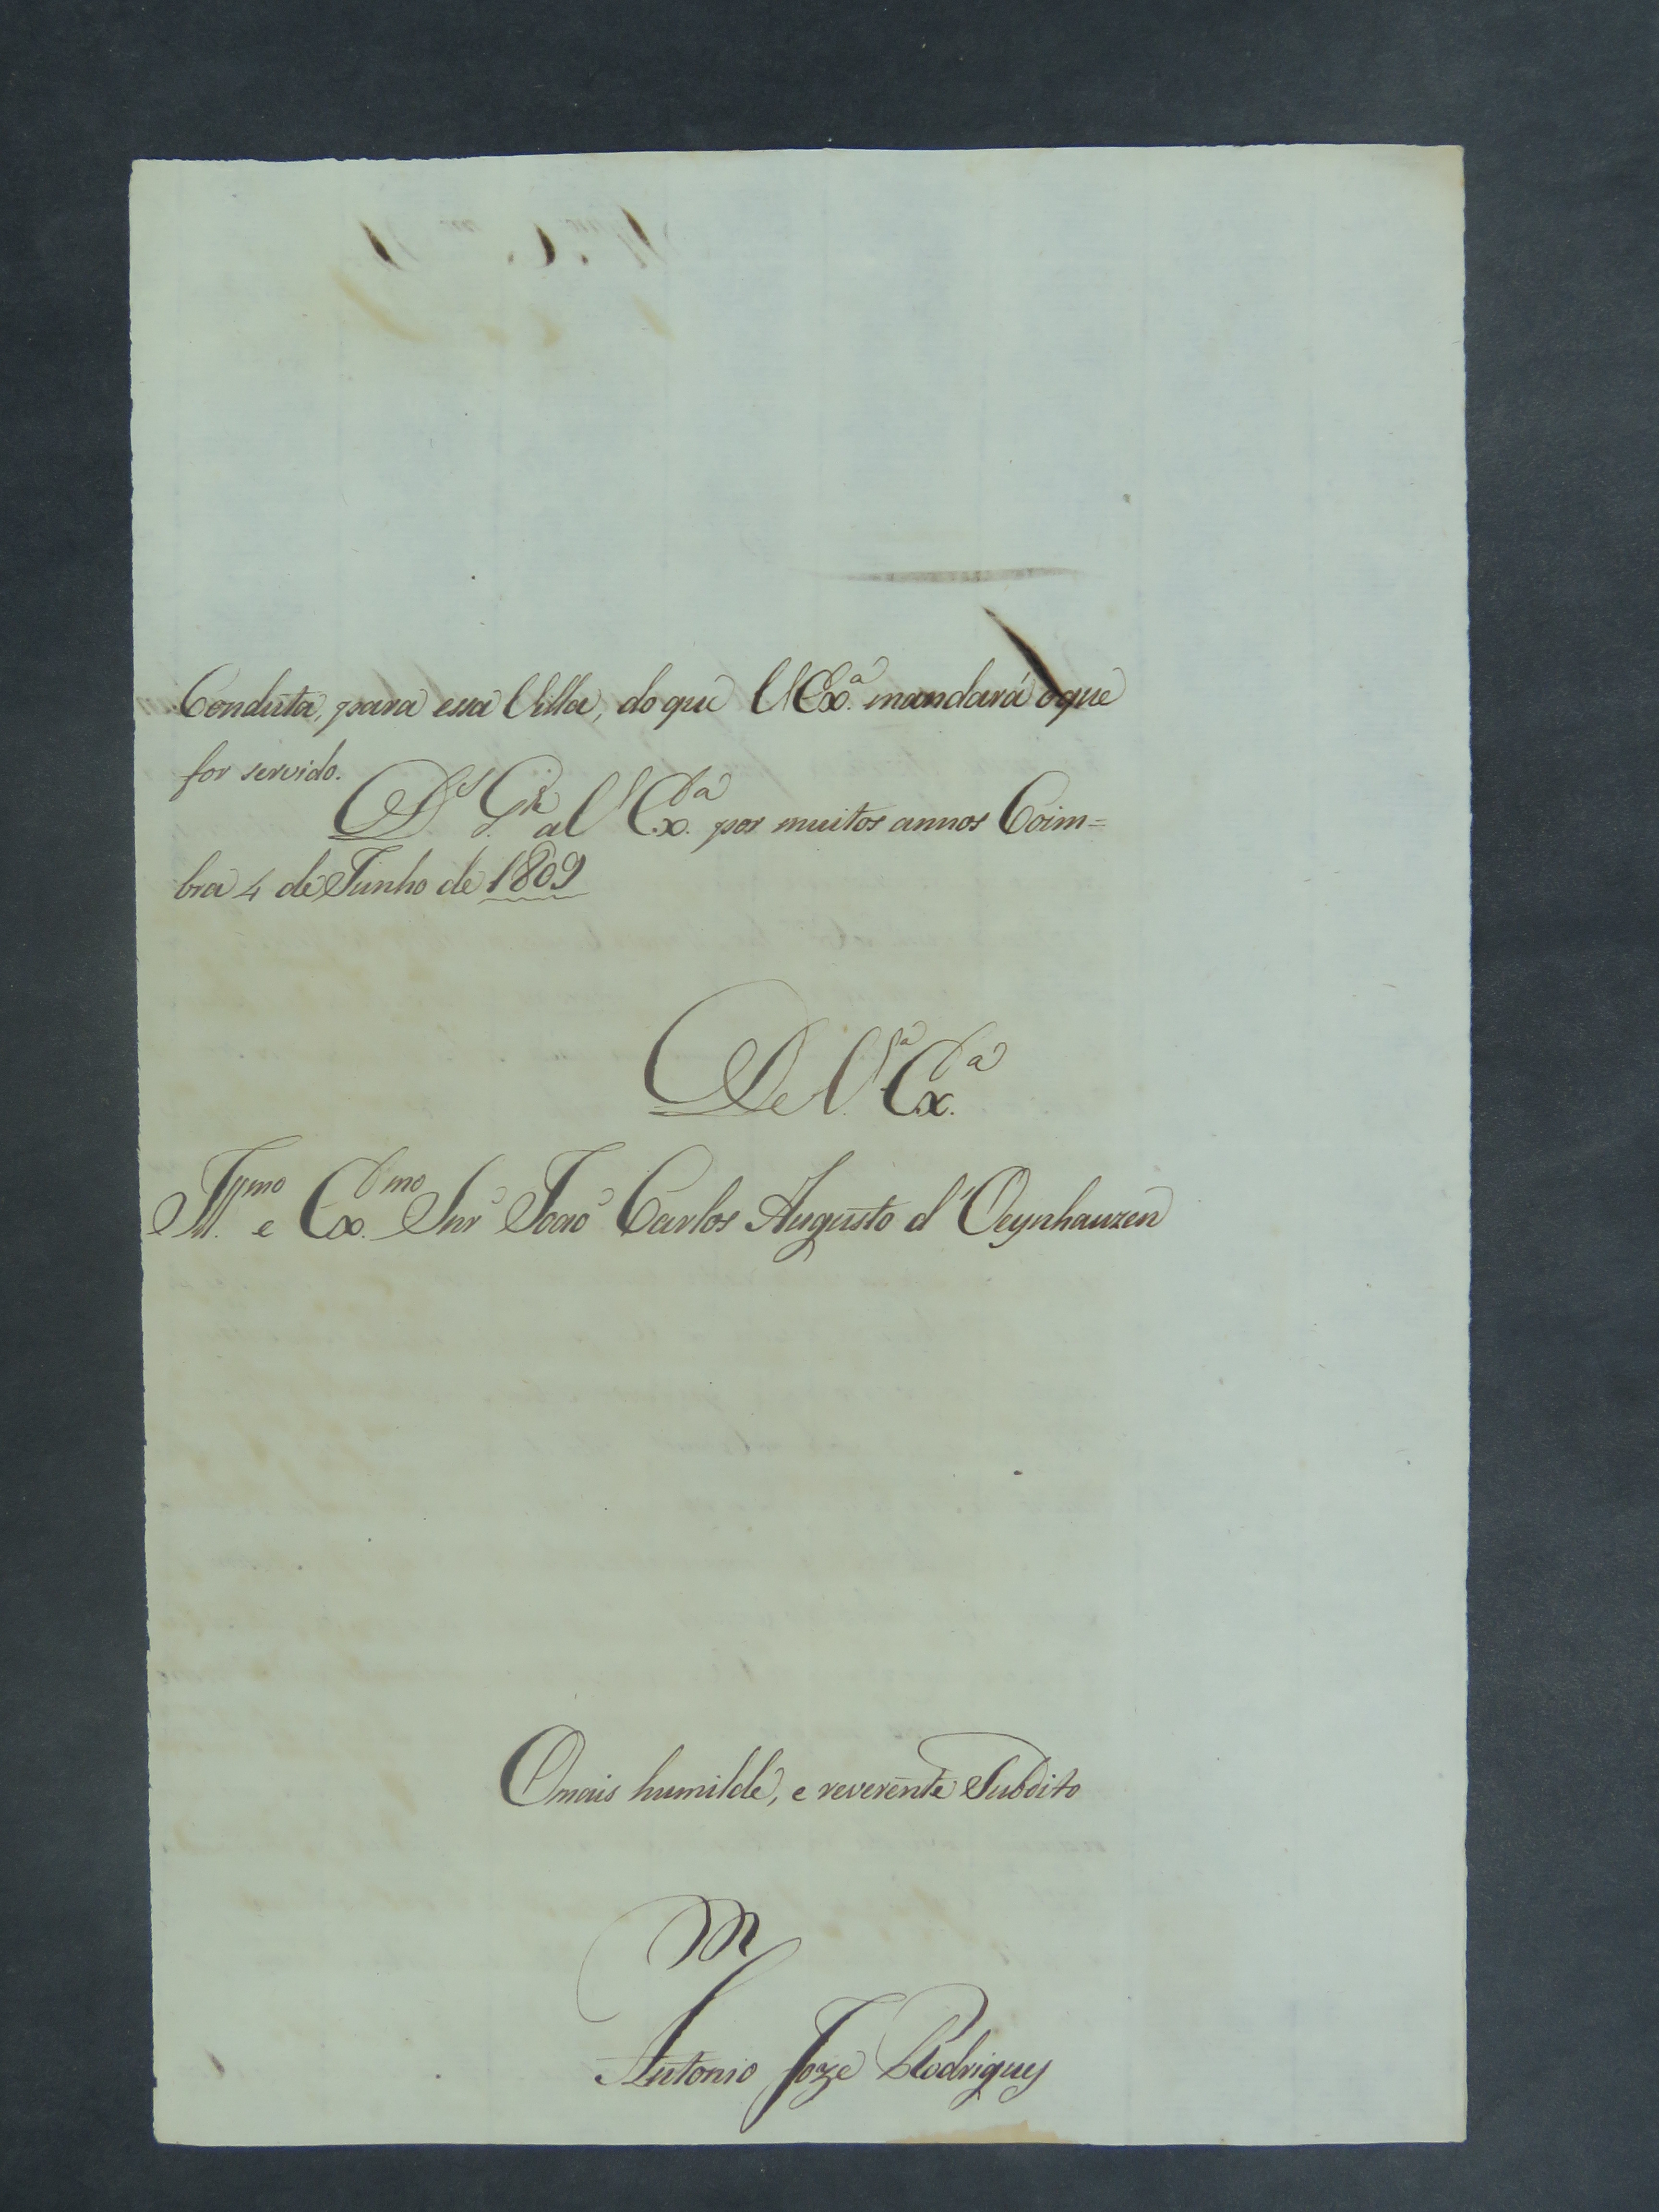 Conduta, para essa Villa, do que V Ex.ª mandará o que
for servido.
D.s G.e a V Ex.ª por muitos annos Coim=
bra 4 de Junho de 1809
De V.ª Ex.ª
Ill.mo e Ex.mo Snr João Carlos Augusto d'Oeynhauzen
O mais humilde, e reverente Subdito
Antonio Joze Rodrigues